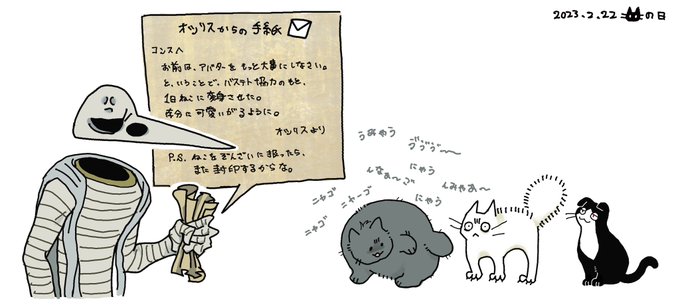 2023.2.22 の日
オシリスからの手紙
コンスへ
お前は、アバターをもっと大事にしなさい。
と、いうことで、バステト協力のもと、
1日ねこに変身させた。
存分に可愛いがるように。
オシリスより
P.S. ねこをぞんざいに扱ったら、
また封印するからな。
うみゃう
ゔゔゔ〜〜
にゃう
んなぁ〜ご
んみゃあ〜
ニャゴ
ニャーゴ
にゃう
ニャゴ